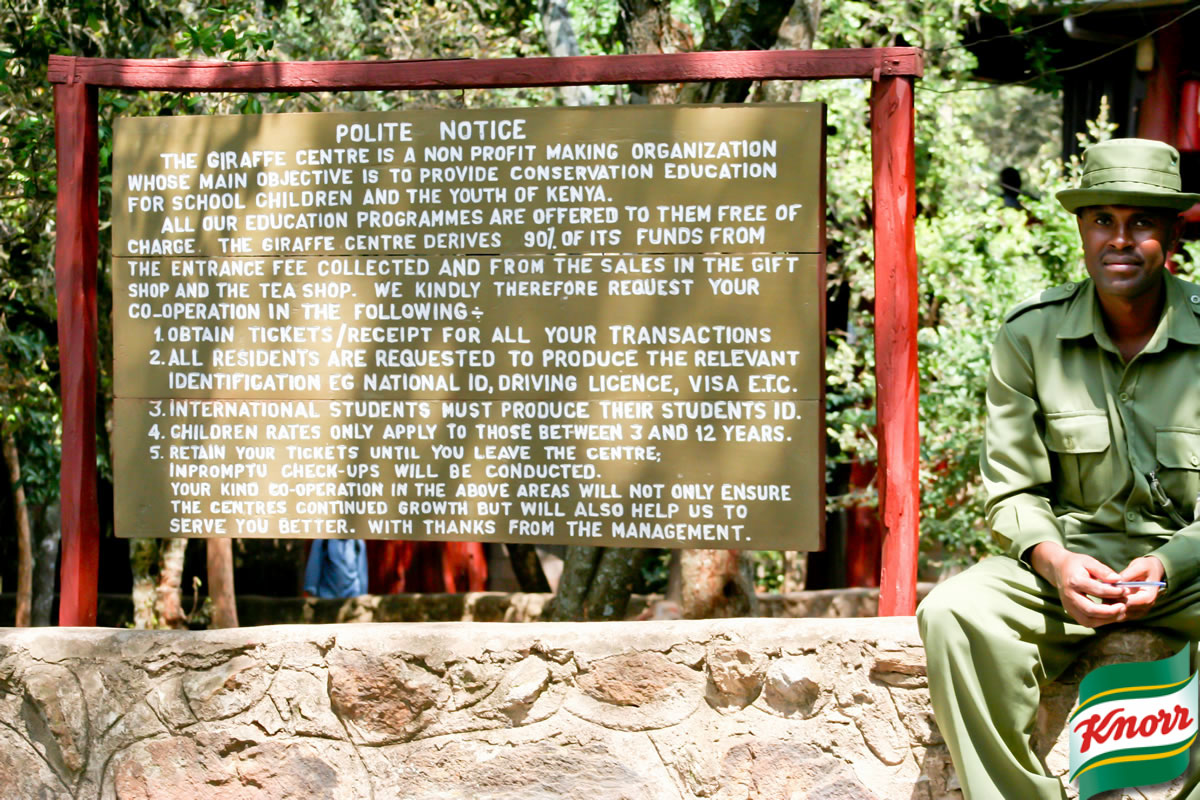 POLITE NOTICE
THE GIRAFFE CENTRE IS A NON PROFIT MAKING ORGANIZATION
WHOSE MAIN OBJECTIVE IS TO PROVIDE CONSERVATION EDUCATION
FOR SCHOOL CHILDREN AND THE YOUTH OF KENYA.
ALL OUR EDUCATION PROGRAMMES ARE OFFERED TO THEM FREE OF
CHARGE. THE GIRAFFE CENTRE DERIVES 90% OF ITS FUNDS FROM
THE ENTRANCE FEE COLLECTED AND FROM THE SALES IN THE GIFT
SHOP AND THE TEA SHOP. WE KINDLY THEREFORE REQUEST YOUR
CO-OPERATION IN THE FOLLOWING÷
1. OBTAIN TICKETS/RECEIPT FOR ALL YOUR TRANSACTIONS
2. ALL RESIDENTS ARE REQUESTED TO PRODUCE THE RELEVANT
IDENTIFICATION EG NATIONAL ID, DRIVING LICENCE, VISA E.T.C.
3. INTERNATIONAL STUDENTS MUST PRODUCE THEIR STUDENTS ID.
4. CHILDREN RATES ONLY APPLY TO THOSE BETWEEN 3 AND 12 YEARS.
5. RETAIN YOUR TICKETS UNTIL YOU LEAVE THE CENTRE;
INPROMPTU CHECK-UPS WILL BE CONDUCTED.
YOUR KIND CO-OPERATION IN THE ABOVE AREAS WILL NOT ONLY ENSURE
THE CENTRES CONTINUED GROWTH BUT WILL ALSO HELP US TO
SERVE YOU BETTER. WITH THANKS FROM THE MANAGEMENT.
Knorr